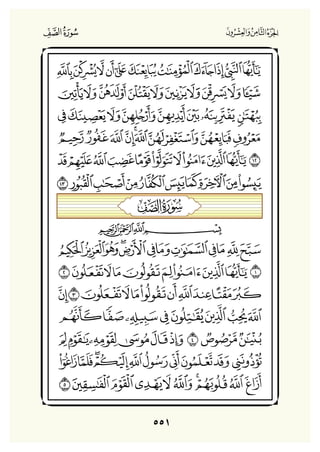 الجزء الثامن والعشرون
سورة الصف
يَٰٓأَيُّهَا ٱلنَّبِيُّ إِذَا جَآءَكَ ٱلْمُؤْمِنَٰتُ يُبَايِعْنَكَ عَلَىٰٓ أَن لَّا يُشْرِكْنَ بِٱللَّهِ
شَيْـًٔا وَلَا يَسْرِقْنَ وَلَا يَزْنِينَ وَلَا يَقْتُلْنَ أَوْلَٰدَهُنَّ وَلَا يَأْتِينَ
بِبُهْتَٰنٍ يَفْتَرِينَهُۥ بَيْنَ أَيْدِيهِنَّ وَأَرْجُلِهِنَّ وَلَا يَعْصِينَكَ فِى
مَعْرُوفٍ فَبَايِعْهُنَّ وَٱسْتَغْفِرْ لَهُنَّ ٱللَّهَ إِنَّ ٱللَّهَ غَفُورٌ رَّحِيمٌ
١٢ يَٰٓأَيُّهَا ٱلَّذِينَ ءَامَنُوا۟ لَا تَتَوَلَّوْا۟ قَوْمًا غَضِبَ ٱللَّهُ عَلَيْهِمْ قَدْ
يَئِسُوا۟ مِنَ ٱلْءَاخِرَةِ كَمَا يَئِسَ ٱلْكُفَّارُ مِنْ أَصْحَٰبِ ٱلْقُبُورِ ١٣
سورة الصف
بِسْمِ ٱللَّهِ ٱلرَّحْمَٰنِ ٱلرَّحِيمِ
سَبَّحَ لِلَّهِ مَا فِى ٱلسَّمَٰوَٰتِ وَمَا فِى ٱلْأَرْضِ وَهُوَ ٱلْعَزِيزُ ٱلْحَكِيمُ
١ يَٰٓأَيُّهَا ٱلَّذِينَ ءَامَنُوا۟ لِمَ تَقُولُونَ مَا لَا تَفْعَلُونَ ٢
كَبُرَ مَقْتًا عِندَ ٱللَّهِ أَن تَقُولُوا۟ مَا لَا تَفْعَلُونَ ٣ إِنَّ
ٱللَّهَ يُحِبُّ ٱلَّذِينَ يُقَٰتِلُونَ فِى سَبِيلِهِۦ صَفًّا كَأَنَّهُم
بُنْيَٰنٌ مَّرْصُوصٌ ٤ وَإِذْ قَالَ مُوسَىٰ لِقَوْمِهِۦ يَٰقَوْمِ لِمَ
تُؤْذُونَنِى وَقَد تَّعْلَمُونَ أَنِّى رَسُولُ ٱللَّهِ إِلَيْكُمْ فَلَمَّا زَاغُوٓا۟
أَزَاغَ ٱللَّهُ قُلُوبَهُمْ وَٱللَّهُ لَا يَهْدِى ٱلْقَوْمَ ٱلْفَٰسِقِينَ ٥
٥٥١